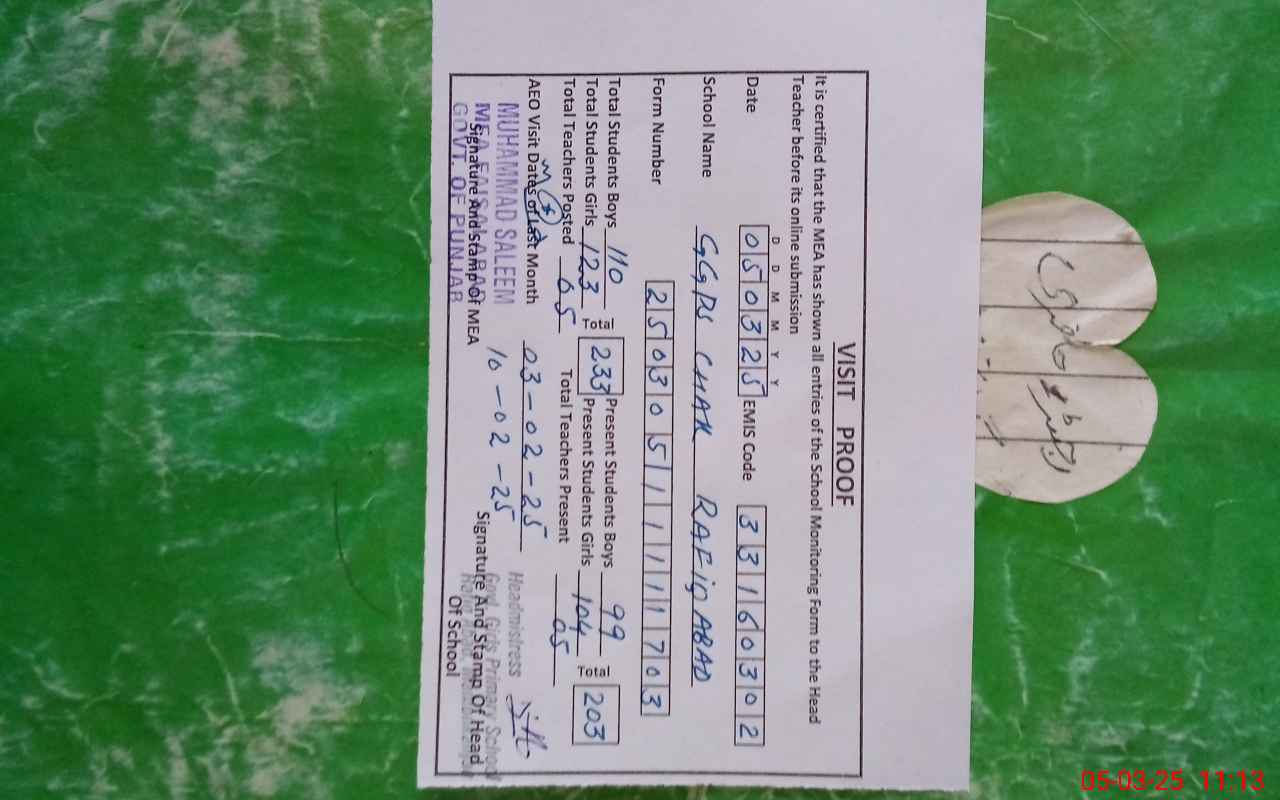 VISIT PROOF
It is certified that the MEA has shown all entries of the School Monitoring Form to the Head
Teacher before its online submission
D D M M Y Y
Date 050325 EMIS Code 33160302
School Name GGPS CHAK RAFIQ ABAD
Form Number 250305111111703
Total Students Boys 110 Total 233 Present Students Boys 99 Total 203
Total Students Girls 123 Present Students Girls 104
Total Teachers Posted 05 Total Teachers Present 05
AEO Visit Dates of Last Month 03-02-25
10-02-25
MUHAMMAD SALEEM
MEA FAISALABAD
GOVT. OF PUNJAB
Signature And Stamp Of MEA
Headmistress
Govt. Girls Primary School
Signature And Stamp Of Head
Of School
05-03-25 11:13